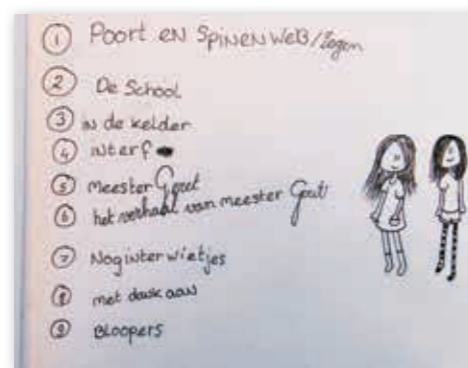 ① Poort en SpinenweB/Zegen
② De School
③ in de kelder
④ interf
⑤ meester Geert
⑥ het verhaal van meester Geert
⑦ Nog interwietjes
⑧ met dank aan
⑨ Bloopers